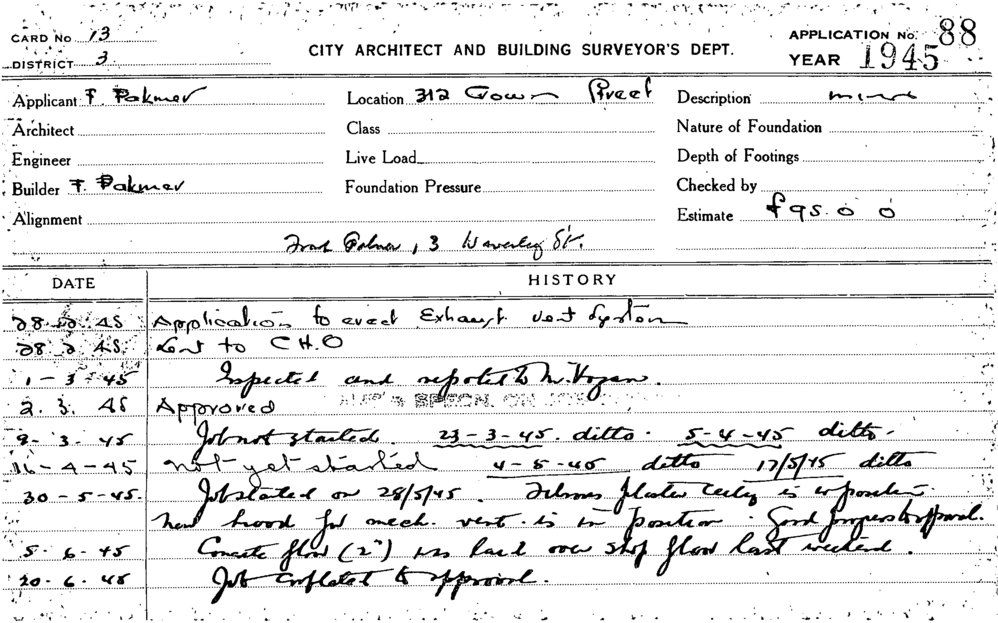 CARD No 13
DISTRICT 3
CITY ARCHITECT AND BUILDING SURVEYOR'S DEPT.
APPLICATION No. 88
YEAR 1945
Applicant F Palmer Location 312 Crown Street Description minor
Architect Class Nature of Foundation
Engineer Live Load Depth of Footings
Builder F. Palmer Foundation Pressure Checked by
Alignment Estimate £95. 0 0
Frank Palmer, 3 Waverley St.
DATE HISTORY
28. 2. 45 Application to erect Exhaust vent System
28. 2. 45. Sent to C H.O
1 - 3 - 45 Inspected and reported to Mr. Hogan.
2. 3. 45 Approved
9 - 3. 45 Job not started. 23 - 3 - 45. ditto. 5 - 4 - 45 ditto.
16 - 4 - 45 not yet started 4 - 5 - 45 ditto 17/5/45 ditto
30 - 5 - 45. Job started on 28/5/45. Fibrous plaster ceiling is in position.
New hood for mech. vent. is in position. Good progress to approval.
5. 6. 45 Concrete floor (2") was laid over shop floor last weekend.
20. 6. 45 Job completed to approval.